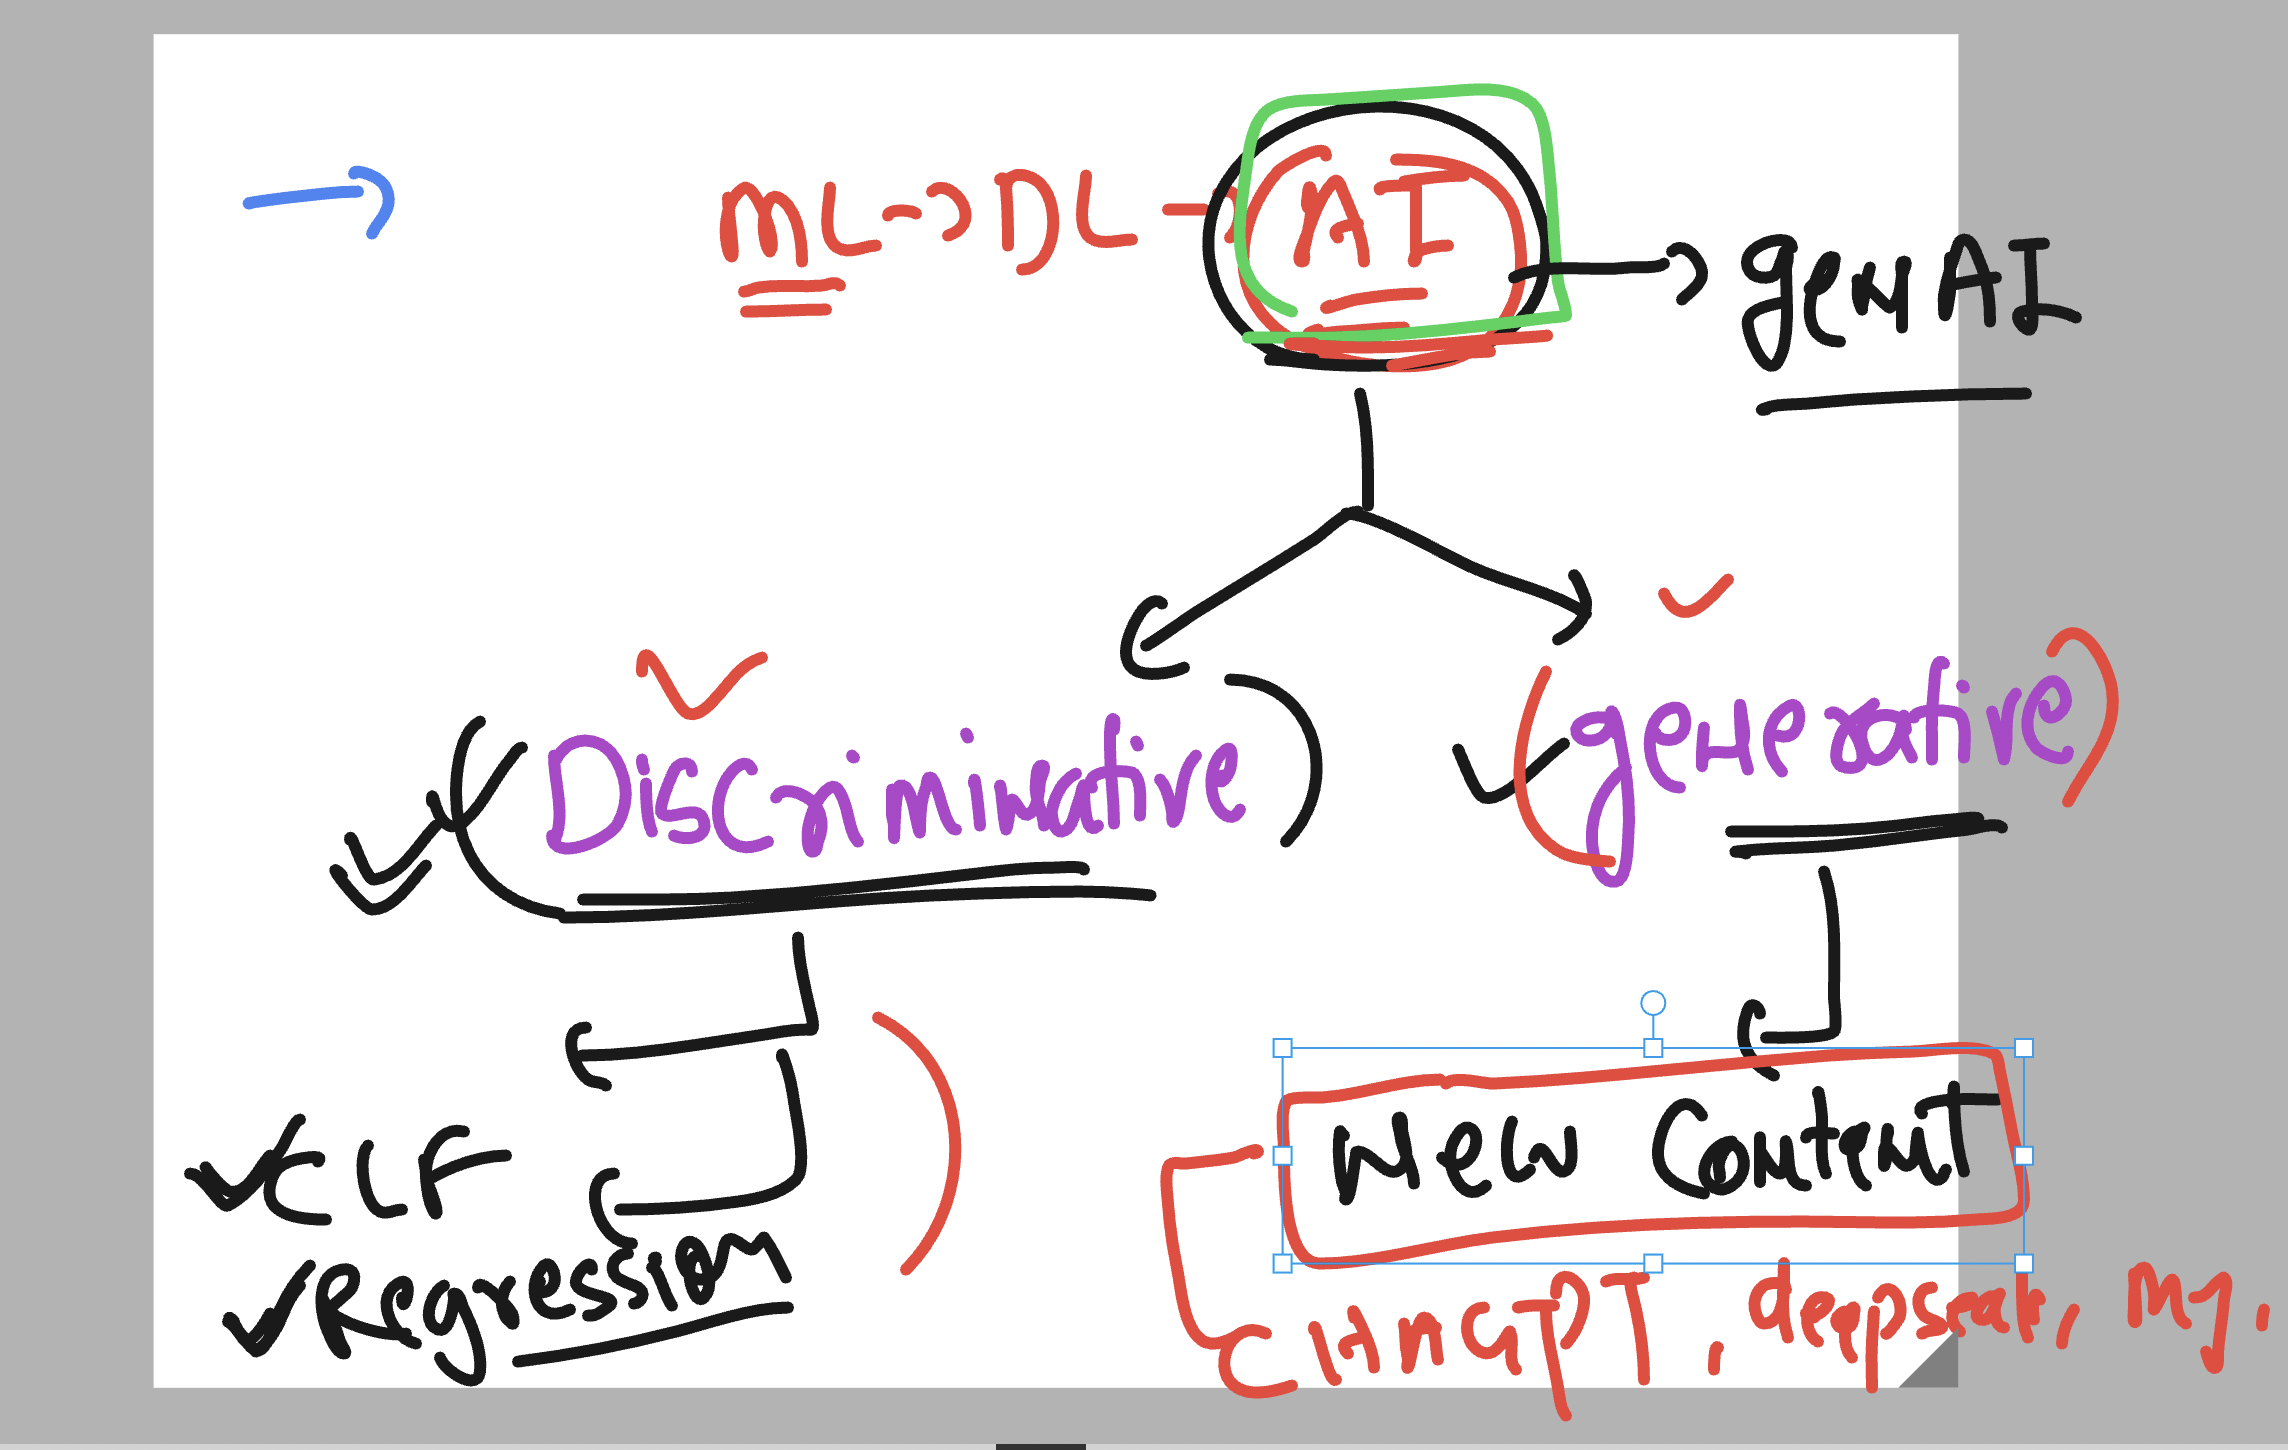 ML → DL → AI → genAI
Discriminative
generative
CLF
Regression
New Content
CHAGPT, deppseak, MJ,